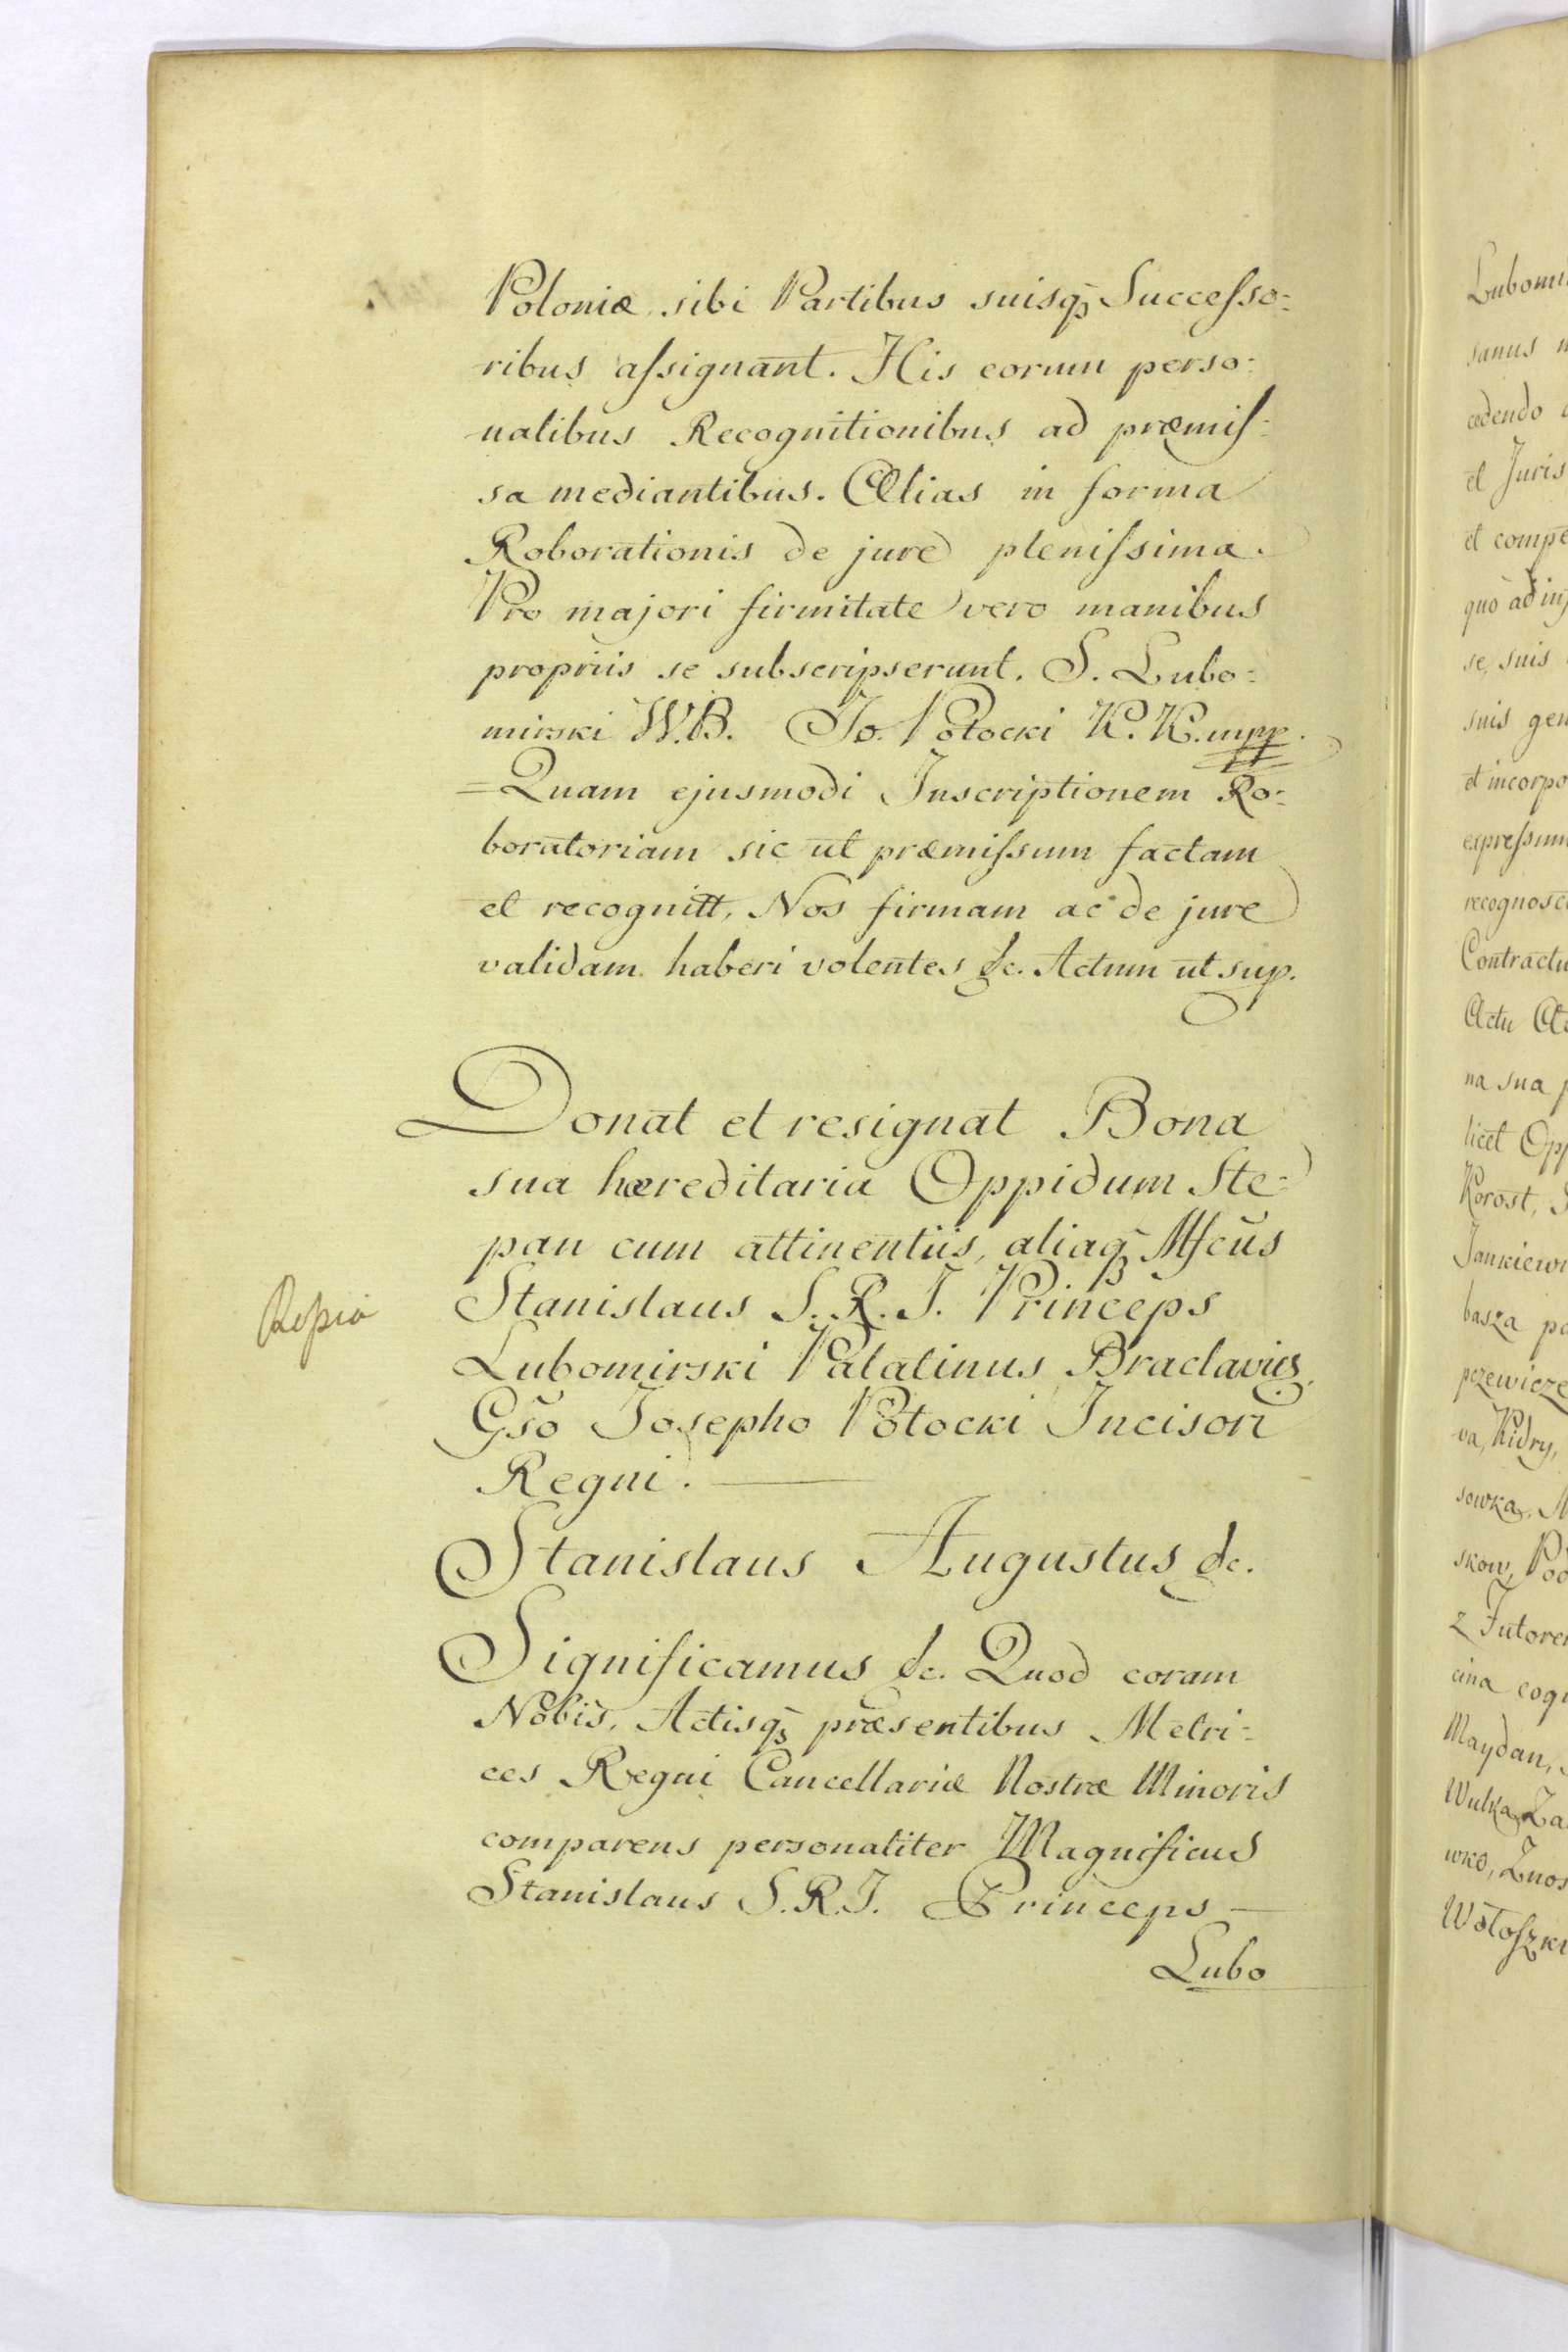 Poloniæ, sibi Partibus suisq̃ Successo=
ribus assignant. His eorum perso=
nalibus Recognitionibus ad præmis=
sa mediantibus. Alias in forma
Roborationis de jure plenissima.
Pro majori firmitate vero manibus
propriis se subscripserunt. S. Lubo=
mirski W.B. Jo. Potocki K. K. mpp.
=Quam ejusmodi Inscriptionem Ro=
boratoriam sic ut præmissum factam
et recognitt, Nos firmam ac de jure
validam haberi volentes &c. Actum ut sup.
Donat et resignat Bona
sua hæreditaria Oppidum Ste=
pan cum attinentiis, aliaq̃ Mfcũs
Stanislaus S. R. J. Princeps
Lubomirski Palatinus Braclavieñ,
Gs̃o Josepho Potocki Incisori
Regni.
Stanislaus Augustus &c.
Significamus &c. Quod coram
Nobis, Actisq̃ præsentibus Metri=
ces Regni Cancellariæ Nostræ Minoris
comparens personaliter Magnificus
Stanislaus S.R.J. Princeps —
Lubo
Lubomi
sanus
cedendo
et Juris
et compe
quo ad inj
se, suis
suis gen
et incorpo
expressum
recognosc
Contractu
Actu
na sua
licet Opp
Korost,
Jankiewi
basza
pczewicze
va, Kidry,
sowka,
skow,
z Jutore
cina cogn
Maydan,
Wulka, Za
wko, Znos
Wołoszki